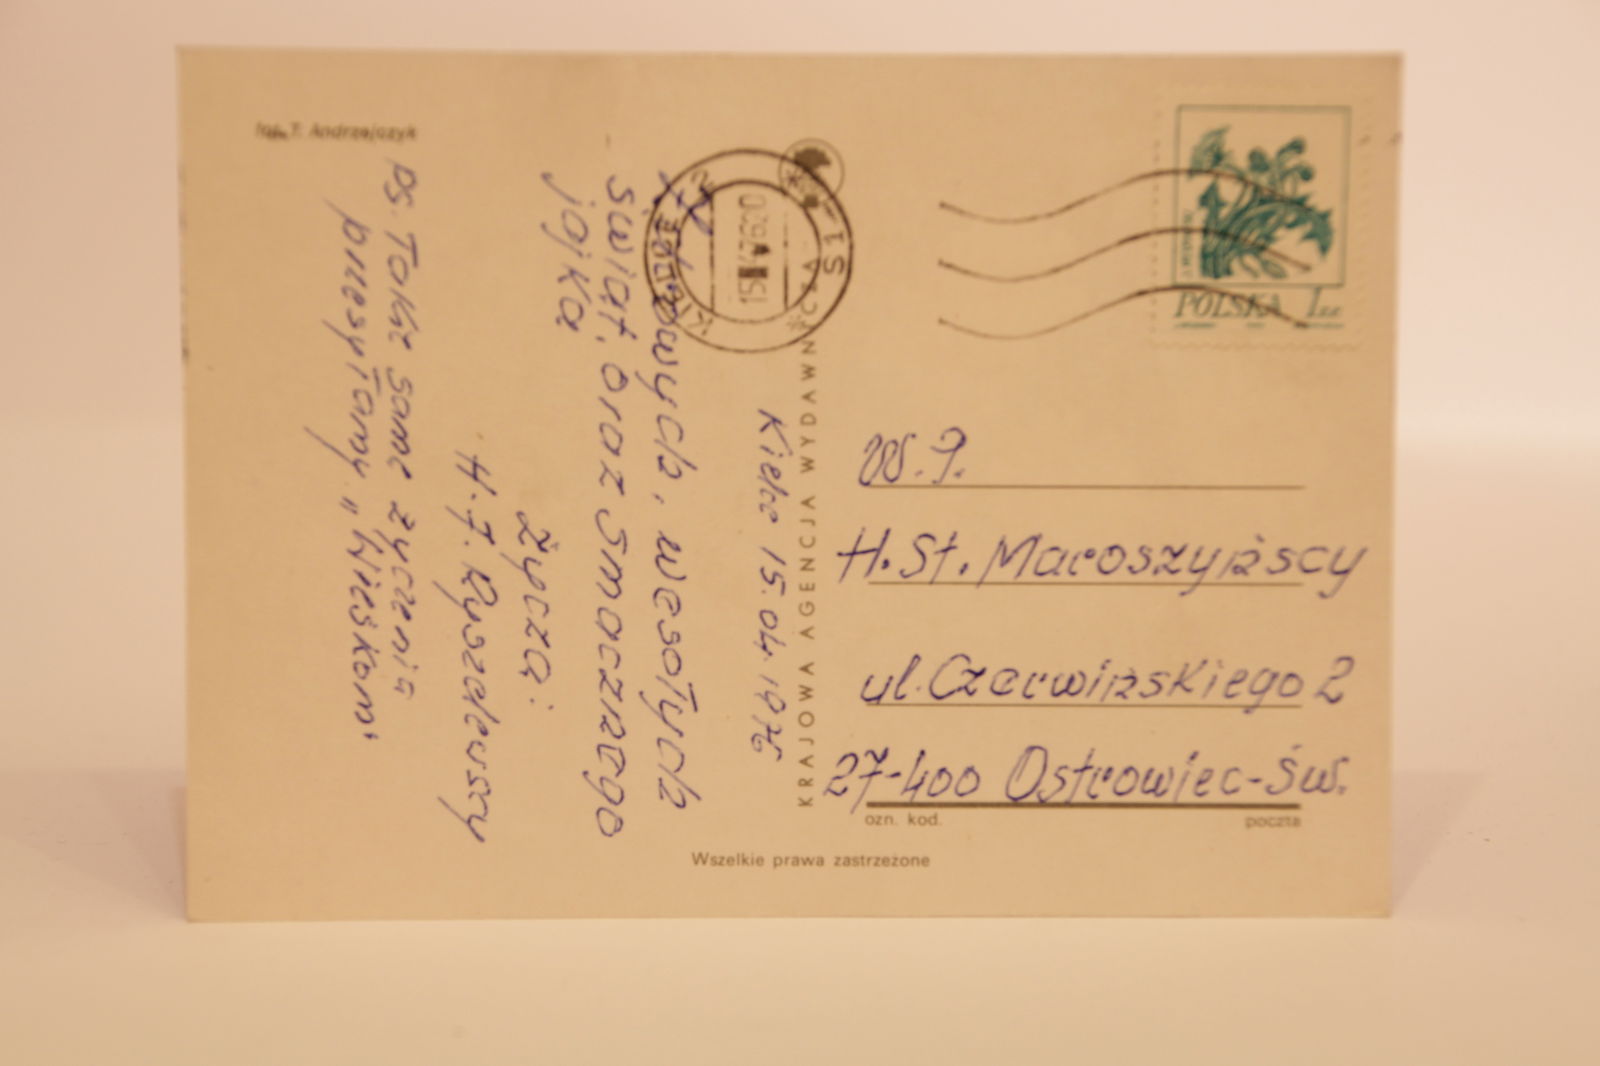 T. Andrzejczyk
Kielce 15.04.1976
Zdrowych, wesołych
Świąt, oraz smacznego
jajka
życzą:
H. J. Ryszelewscy
PS. Takie same życzenia
przesyłamy "Wieśkom"
KIELCE
KRAJOWA AGENCJA WYDAWNICZA
POLSKA 1 ZŁ
W.P.
H. St. Maroszyńscy
ul. Czerwińskiego 2
27-400 Ostrowiec-Św.
ozn. kod. poczta
Wszelkie prawa zastrzeżone